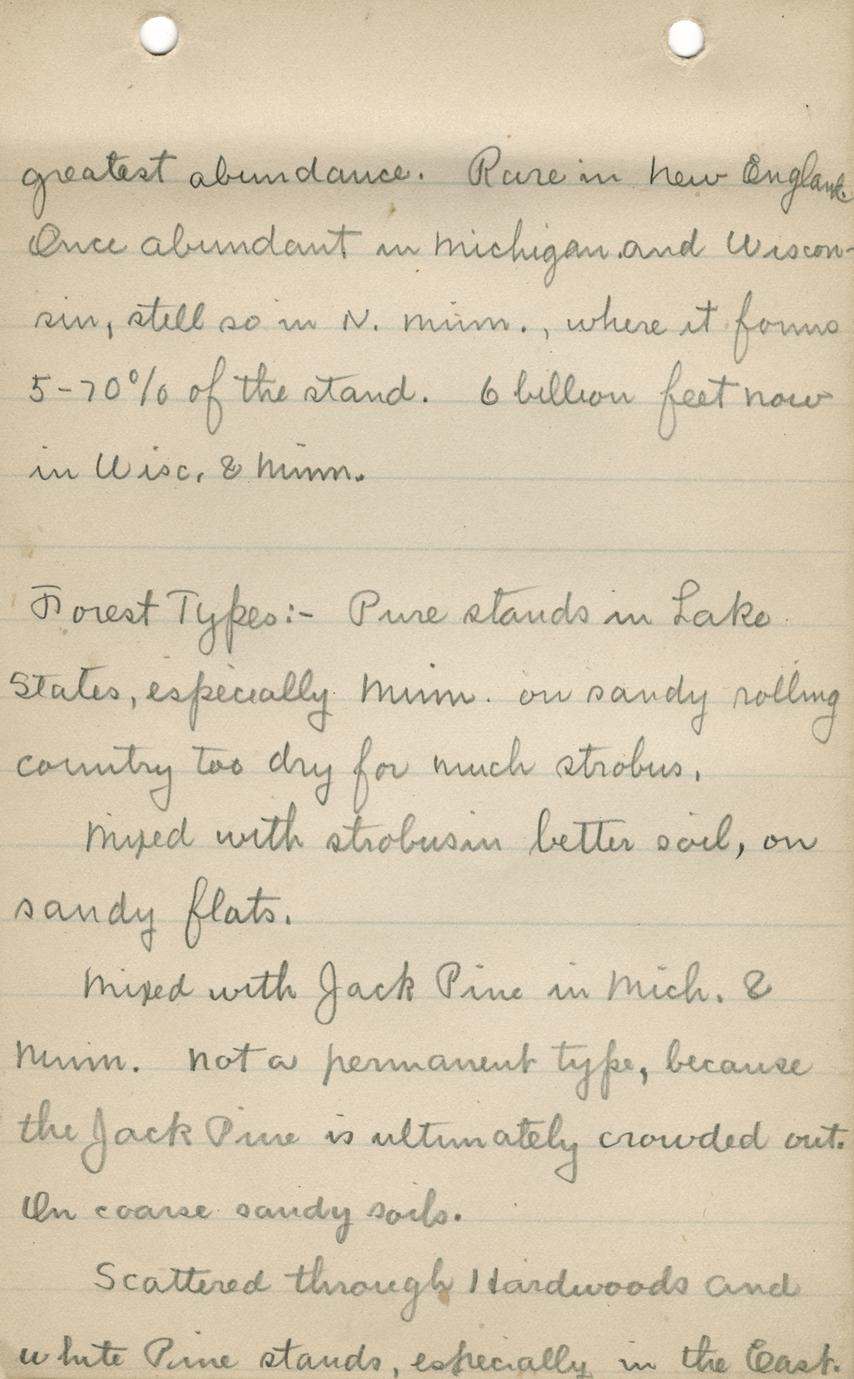 greatest abundance. Rare in New England.
Once abundant in Michigan and Wiscon-
sin, still so in N. Minn., where it forms
5-70% of the stand. 6 billion feet now
in Wisc. & Minn.
Forest Types:- Pure stands in Lake
States, especially Minn. on sandy rolling
country too dry for much strobus.
Mixed with strobus in better soil, on
sandy flats.
Mixed with Jack Pine in Mich. &
Minn. Not a permanent type, because
the Jack Pine is ultimately crowded out.
On coarse sandy soils.
Scattered through Hardwoods and
White Pine stands, especially in the East.